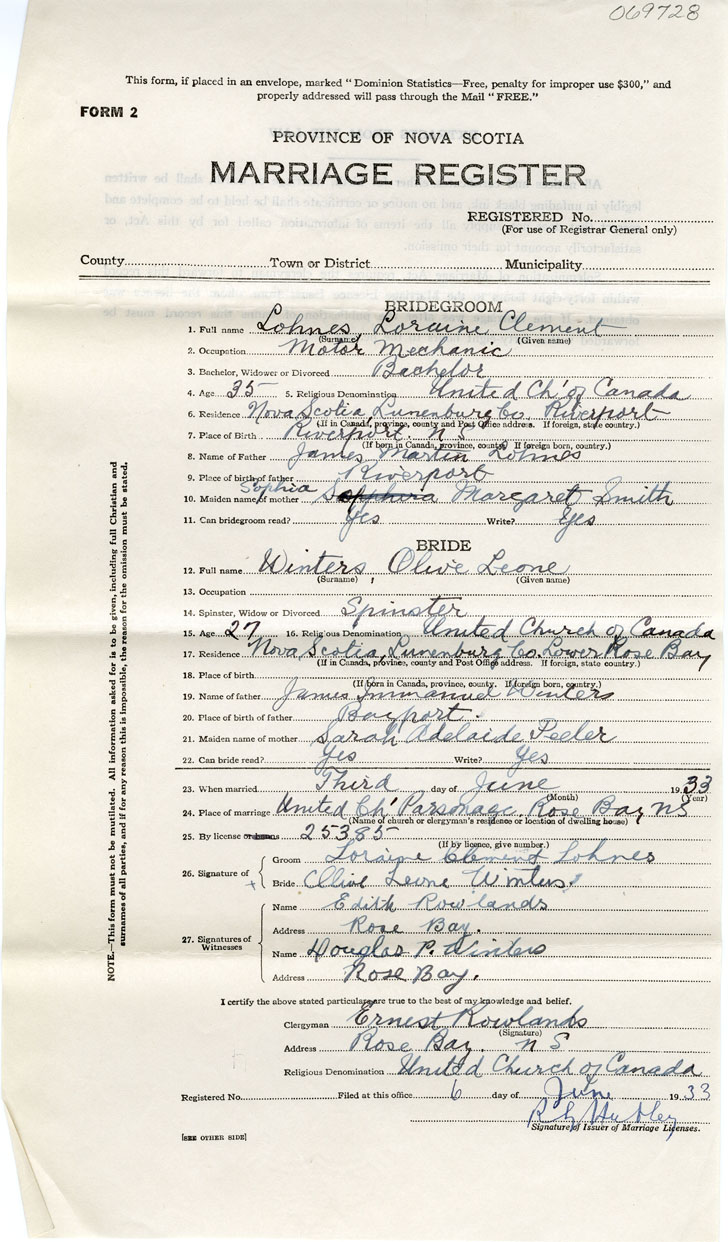 069728
This form, if placed in an envelope, marked " Dominion Statistics—Free, penalty for improper use $300," and
properly addressed will pass through the Mail " FREE."
FORM 2
PROVINCE OF NOVA SCOTIA
MARRIAGE REGISTER
REGISTERED No.
(For use of Registrar General only)
County Town or District Municipality
BRIDEGROOM
1. Full name Lohnes Loraine Clement
(Surname) (Given name)
2. Occupation Motor Mechanic
3. Bachelor, Widower or Divorced Bachelor
4. Age 35 5. Religious Denomination United Ch' of Canada
6. Residence Nova Scotia Lunenburg Co. Riverport
(If in Canada, province, county and Post Office address. If foreign, state country.)
7. Place of Birth Riverport. N S
(If born in Canada, province, county. If foreign born, country.)
8. Name of Father James Martin Lohnes
9. Place of birth of father Riverport
Sophia
10. Maiden name of mother Margaret Smith
11. Can bridegroom read? Yes Write? Yes
BRIDE
12. Full name Winters Olive Leone
(Surname) (Given name)
13. Occupation
14. Spinster, Widow or Divorced Spinster
15. Age 27 16. Religious Denomination United Church of Canada
17. Residence Nova Scotia, Lunenburg Co. Lower Rose Bay
(If in Canada, province, county and Post Office address. If foreign, state country.)
18. Place of birth
(If born in Canada, province, county. If foreign born, country.)
19. Name of father James Immanuel Winters
20. Place of birth of father Bayport.
21. Maiden name of mother Sarah Adelaide Feeler
22. Can bride read? Yes Write? Yes
23. When married Third day of June 1933
(Month) (Year)
24. Place of marriage United Ch' Parsonage, Rose Bay NS
(Name of church or clergyman's residence or location of dwelling house)
25. By license or banns 25385
(If by licence, give number.)
26. Signature of
Groom Loraine Clement Lohnes
Bride Olive Leone Winters
27. Signatures of Witnesses
Name Edith Rowlands
Address Rose Bay.
Name Douglas P. Winters
Address Rose Bay.
I certify the above stated particulars are true to the best of my knowledge and belief.
Clergyman Ernest Rowlands
(Signature)
Address Rose Bay. N S
Religious Denomination United Church of Canada
Registered No. Filed at this office 6 day of June 1933
Signature of Issuer of Marriage Licenses.
[SEE OTHER SIDE]
NOTE.—This form must not be mutilated. All information asked for is to be given, including full Christian and
surnames of all parties, and if for any reason this is impossible, the reason for the omission must be stated.